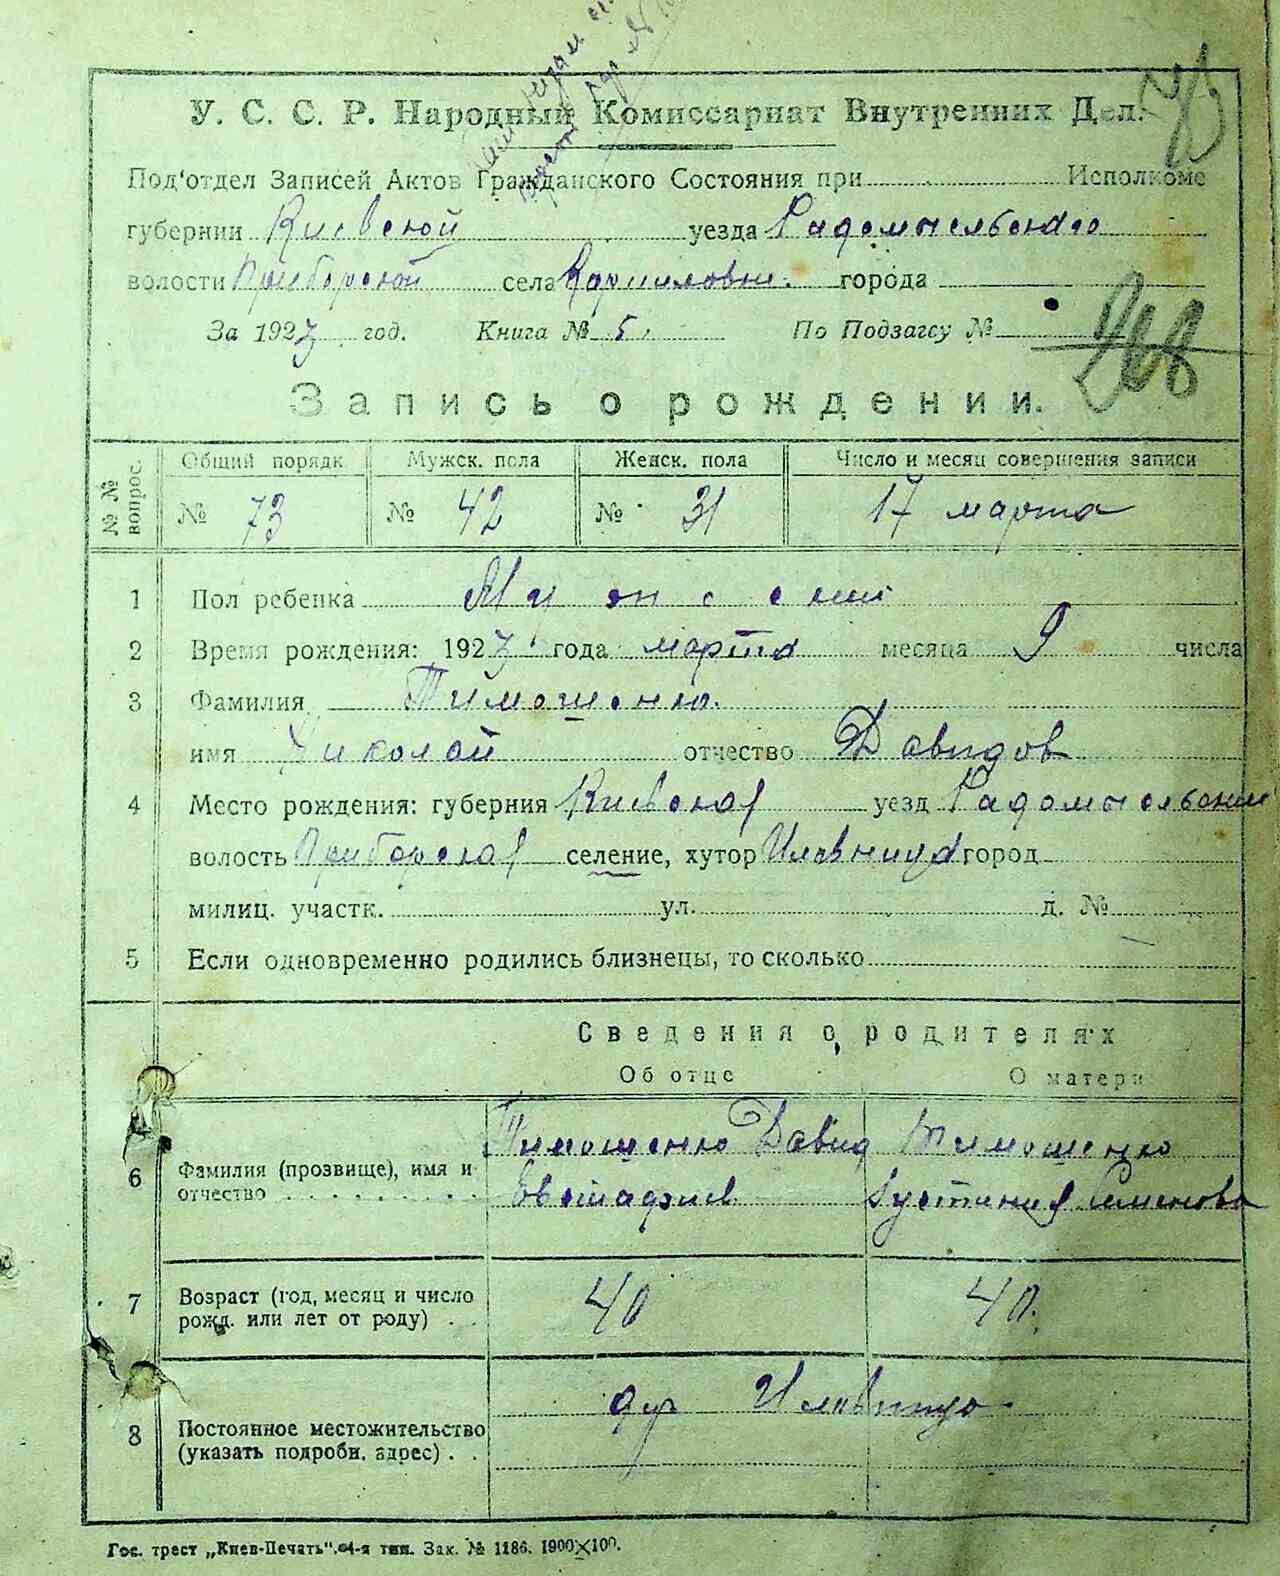 У. С. С. Р. Народный Комиссариат Внутренних Дел.
Под'отдел Записей Актов Гражданского Состояния при Исполкоме
губернии Киевской уезда Радомысльского
волости Приборской села города
За 1923 год. Книга № 5. По Подзагсу №
Запись о рождении.
№ № вопрос. Общий порядк. Мужск. пола Женск. пола Число и месяц совершения записи
№ 73 № 42 № 31 17 марта
1 Пол ребенка
2 Время рождения: 1923 года марта месяца 9 числа
3 Фамилия Тимошенко.
имя Николай отчество Давидов
4 Место рождения: губерния Киевская уезд Радомысльский
волость Приборская селение, хутор Иловница город
милиц. участк. ул. д. №
5 Если одновременно родились близнецы, то сколько
Сведения о родителях
Об отце О матери
6 Фамилия (прозвище), имя и отчество
Тимошенко Давид
Евстафиев
Тимошенко
Іустиния Семенова
7 Возраст (год, месяц и число рожд. или лет от роду) . .
40 40.
8 Постоянное местожительство (указать подробн. адрес) . .
Гос. трест „Киев-Печать". 4-я тип. Зак. № 1186. 1900×100.